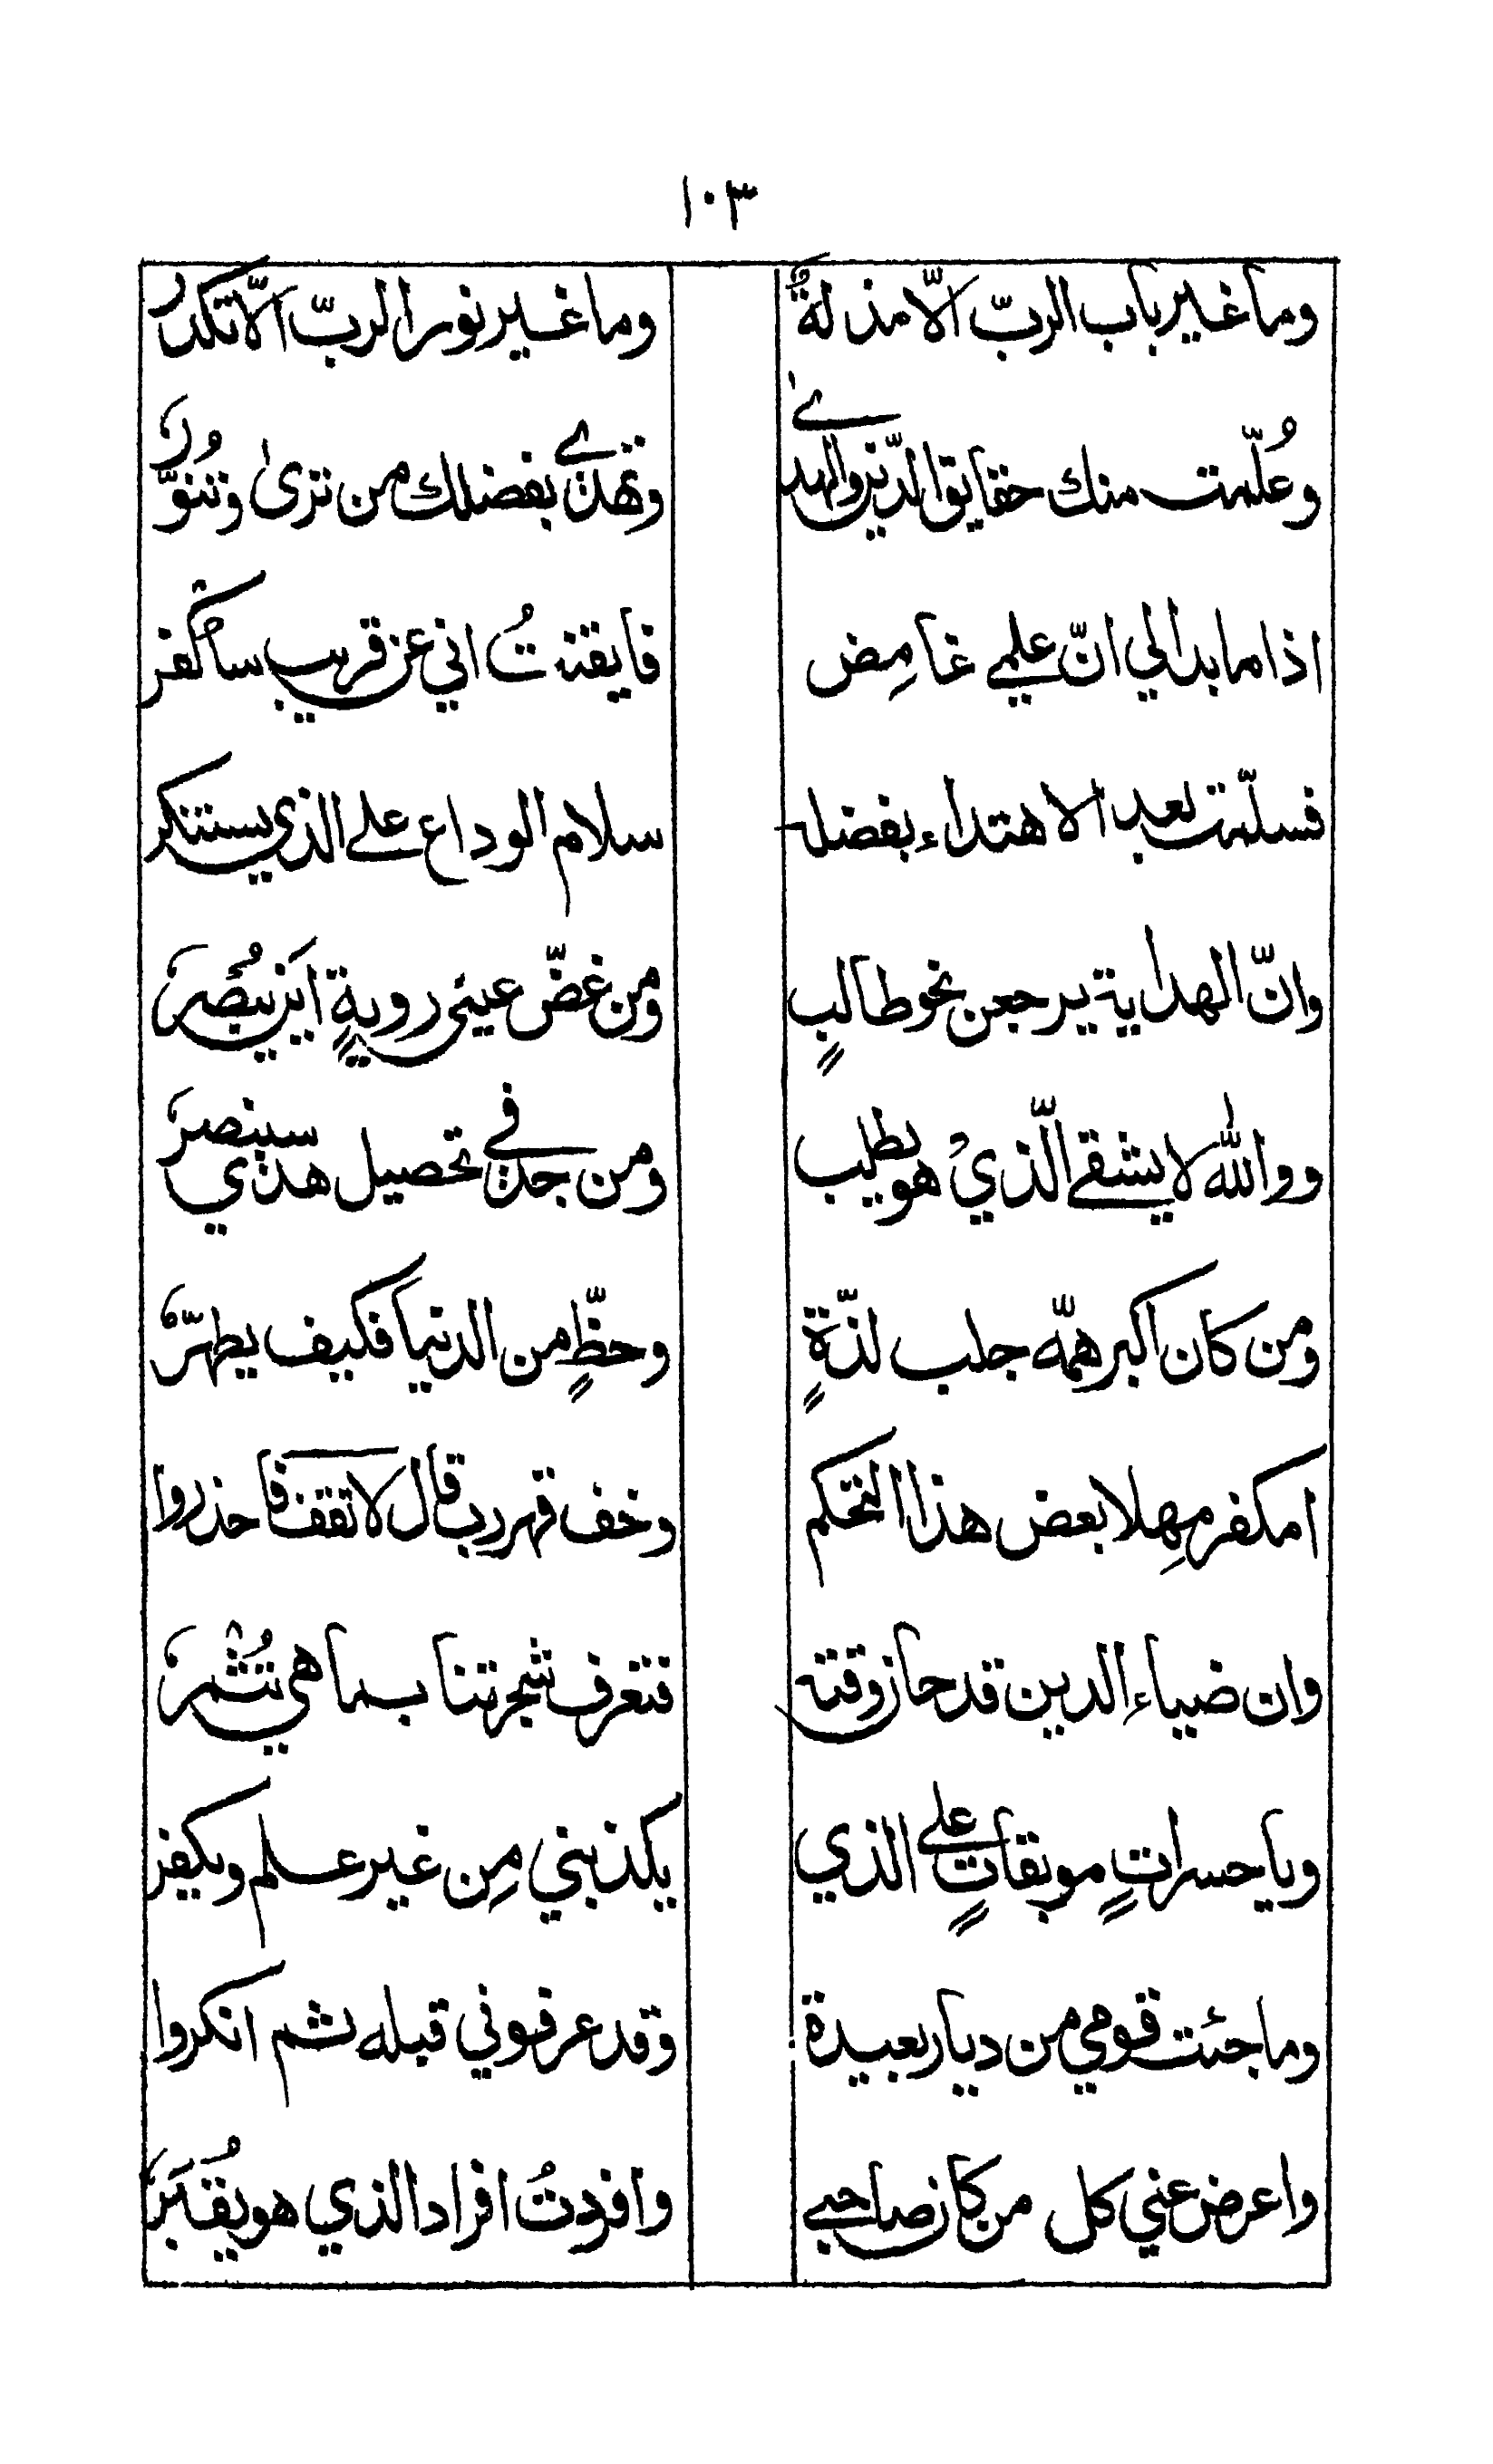 ۱۰۳
وما غير باب الربّ الّا مذلةٌ وما غير نور الربّ الّا تكدر
وعُلّمت منك حقايق الدّين والهدےٰ وتهدے بفضلك من ترىٰ وتنُوّرُ
اذا ما بدا لي انّ علمي غامِض فايقنتُ اني عن قريب ساكفر
فسلّمت بعد الاهتداء بفضله سلام الوداع علے الذي يستنكر
وانّ الهداية يرجعن نحو طالبٍ ومن غضّ عيني رويةٍ اين يبُصرُ
ووالله لا يشقے الّذيْ هو يطلب ومن جدّ في تحصيل هدي سينصرُ
ومن كان اكبر همّه جلب لذّةٍ وحظٍّ من الدنيا فكيف يطهّرُ
امكفر مهِلا بعض هذا التحكم وخف قهر رب قال لا تقف فاحذروا
وان ضياء الدين قد حاز وقته فتعرف شجرتنا بما هي تُثْمرُ
ويا حسراتٍ موبقاتٍ علے الذي يكذبني مِن غير علم ويكفر
وما جئت قومي من ديار بعيدة وقد عرفوني قبله ثم انكروا
واعرض عني كل من كان صاحبے وافردتُ افراد الذي هو يُقبَرُ